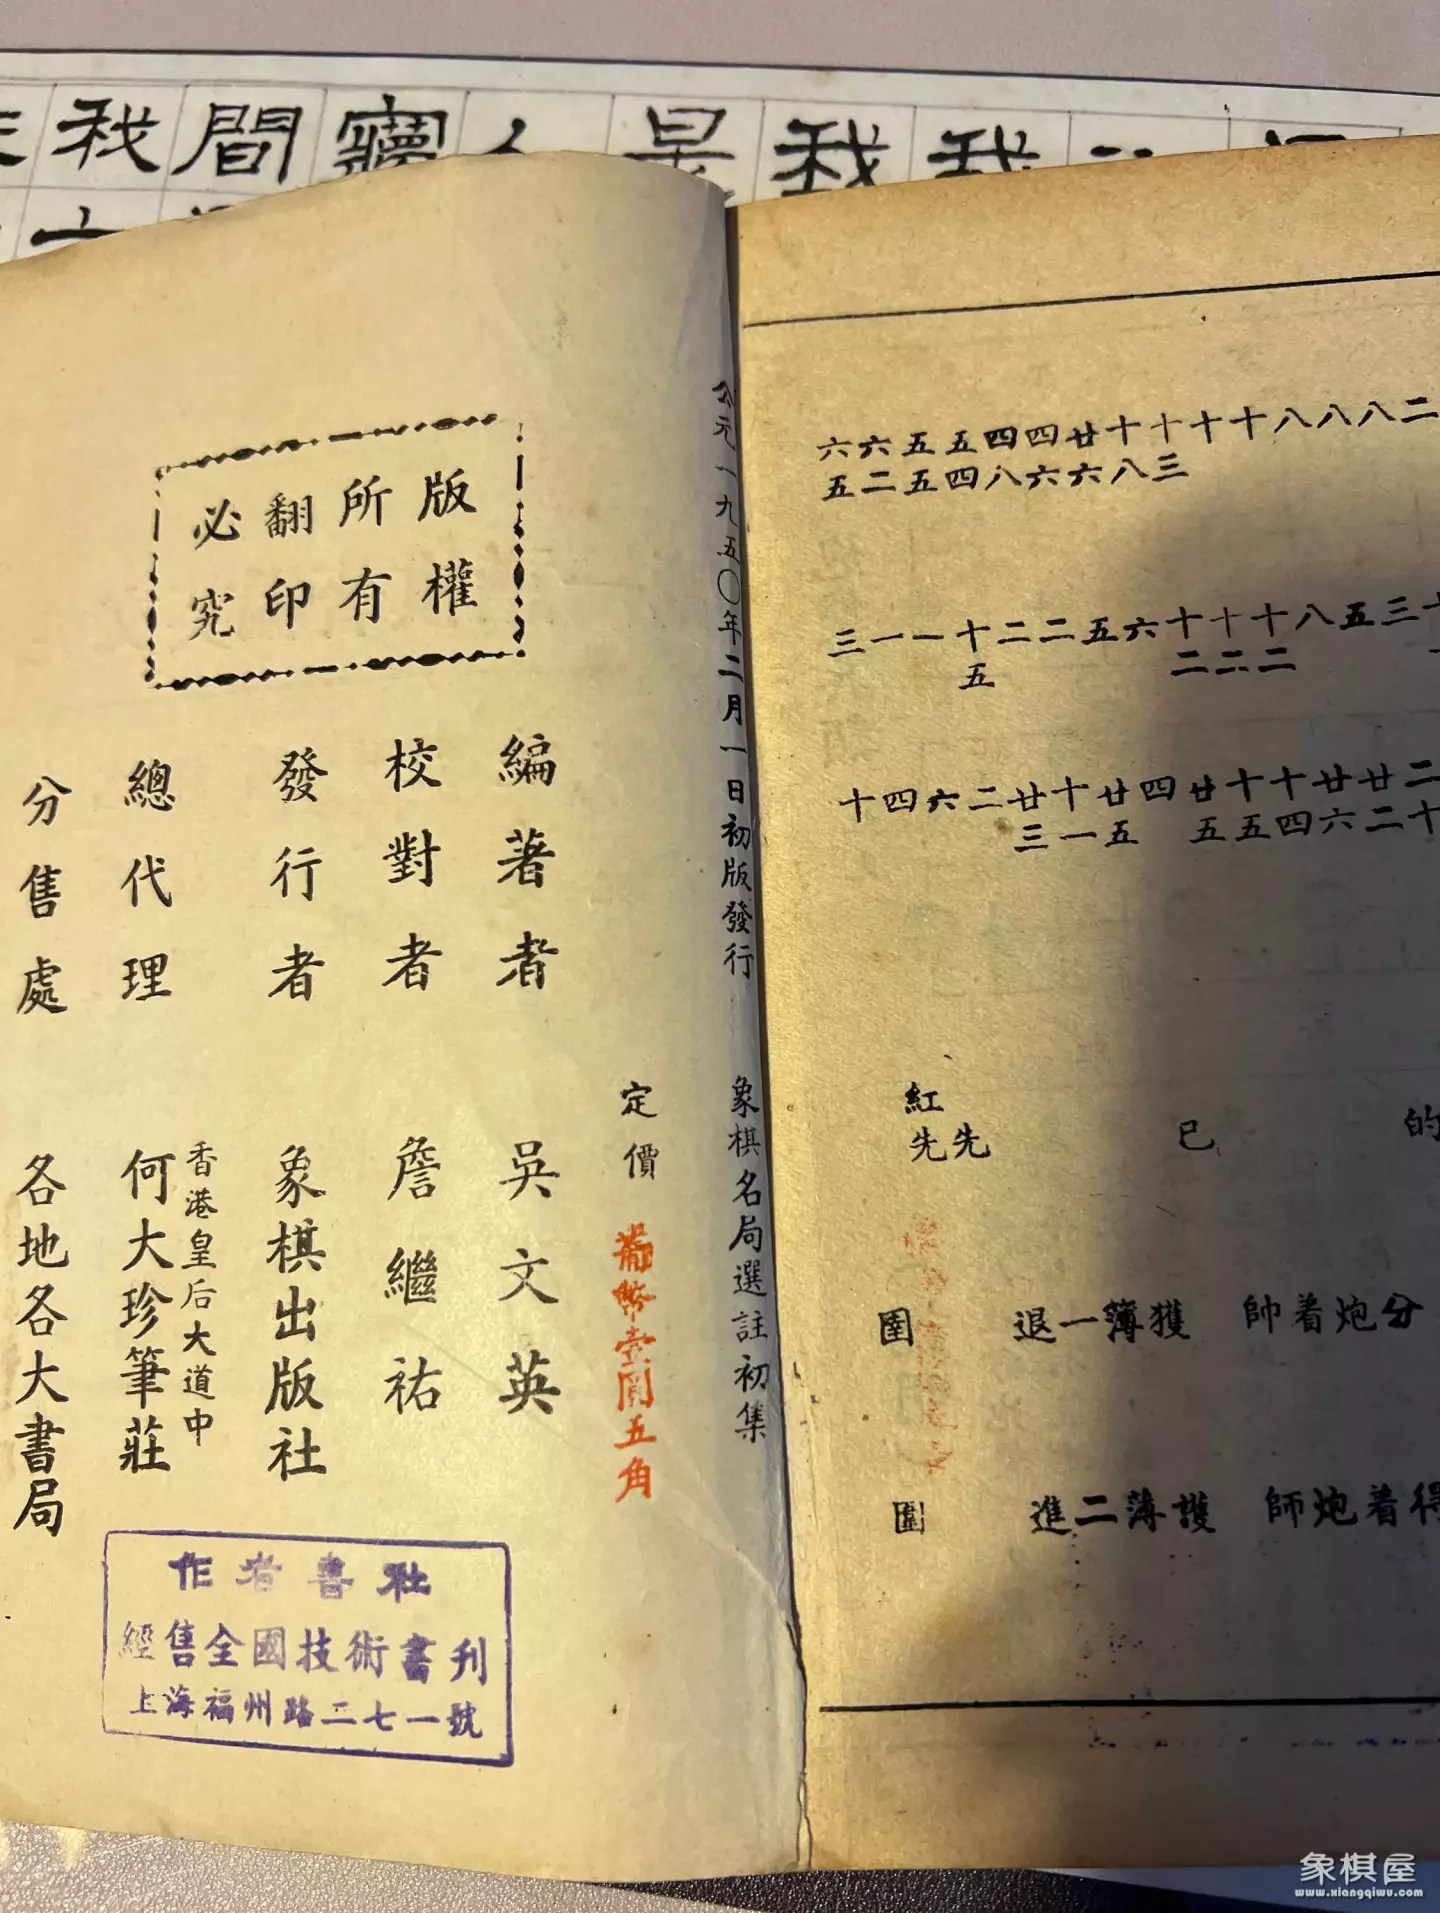 我間
是我我
公元一九五〇年二月一日初版發行
象棋名局選註初集
版權
所有
翻印
必究
定價 葡幣壹圓五角
編著者 吳文英
校對者 詹繼祐
發行者 象棋出版社
香港皇后大道中
總代理 何大珍筆莊
分售處 各地各大書局
作者書社
經售全國技術書刊
上海福州路二七一號
六六五五四四廿十十十十八八八二
五二五四八六六八三
三一一十二二五六十十十八五三十
五 二二二
十四六二廿十廿四廿十十廿廿二
三一五 五五四六二十
紅
先先 已 的
圍 退一簿獲 帥着炮分
圍 進二薄護 師炮着得
象棋屋
www.xiangqiwu.com